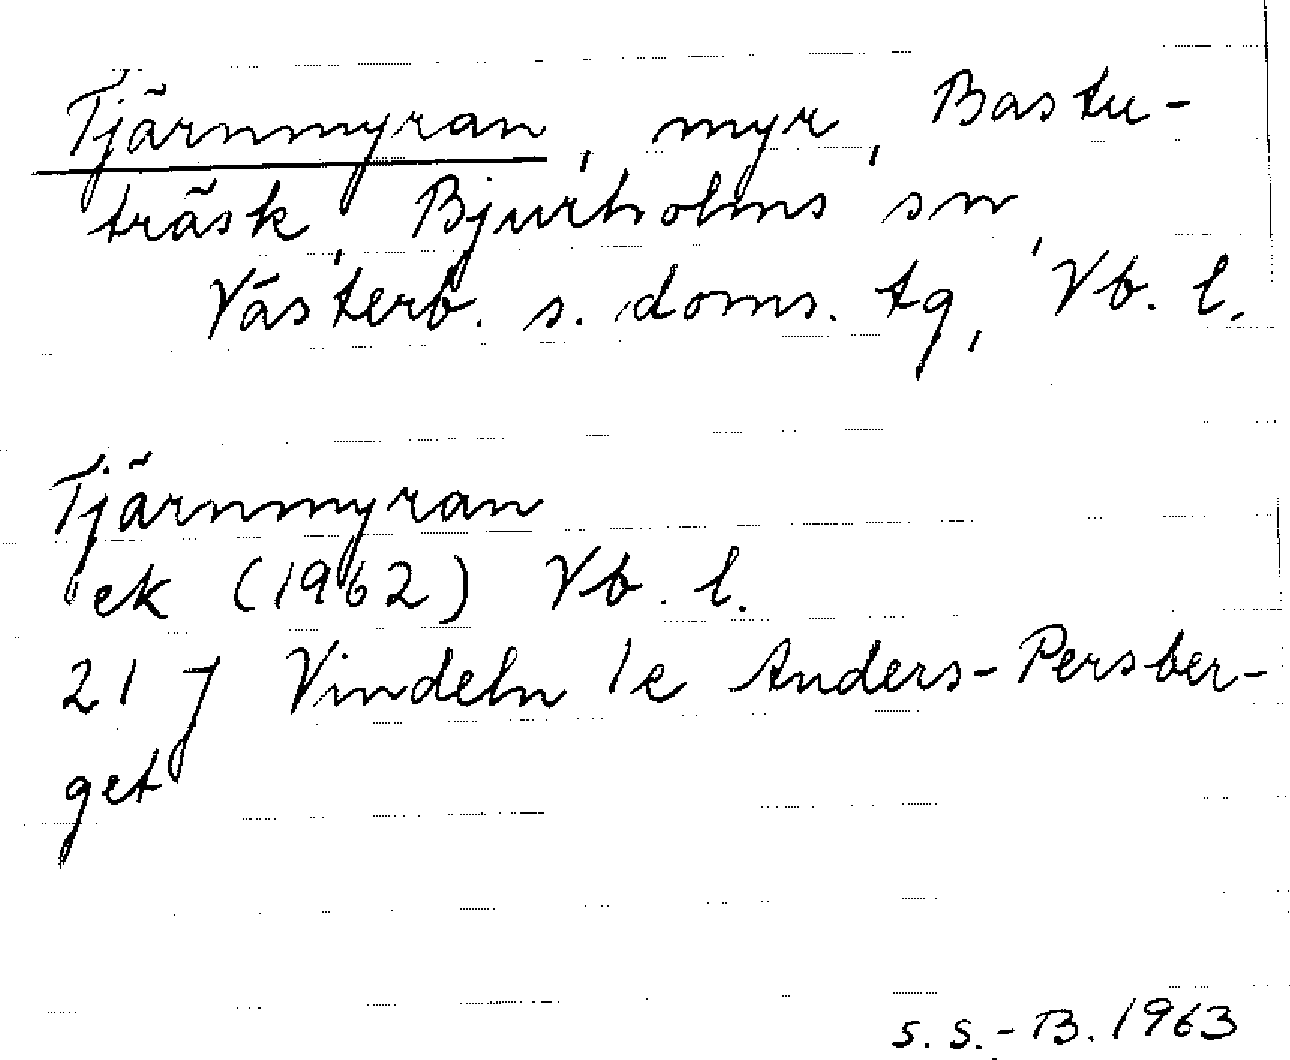 Tjärnmyran, myr, Bastu-
träsk, Bjurholms sn,
Västerb. s. doms. tg, Vb. l.
Tjärnmyran
ek (1962) Vb. l.
21 J Vindeln 1e Anders-Persber-
get
S. S.-B. 1963